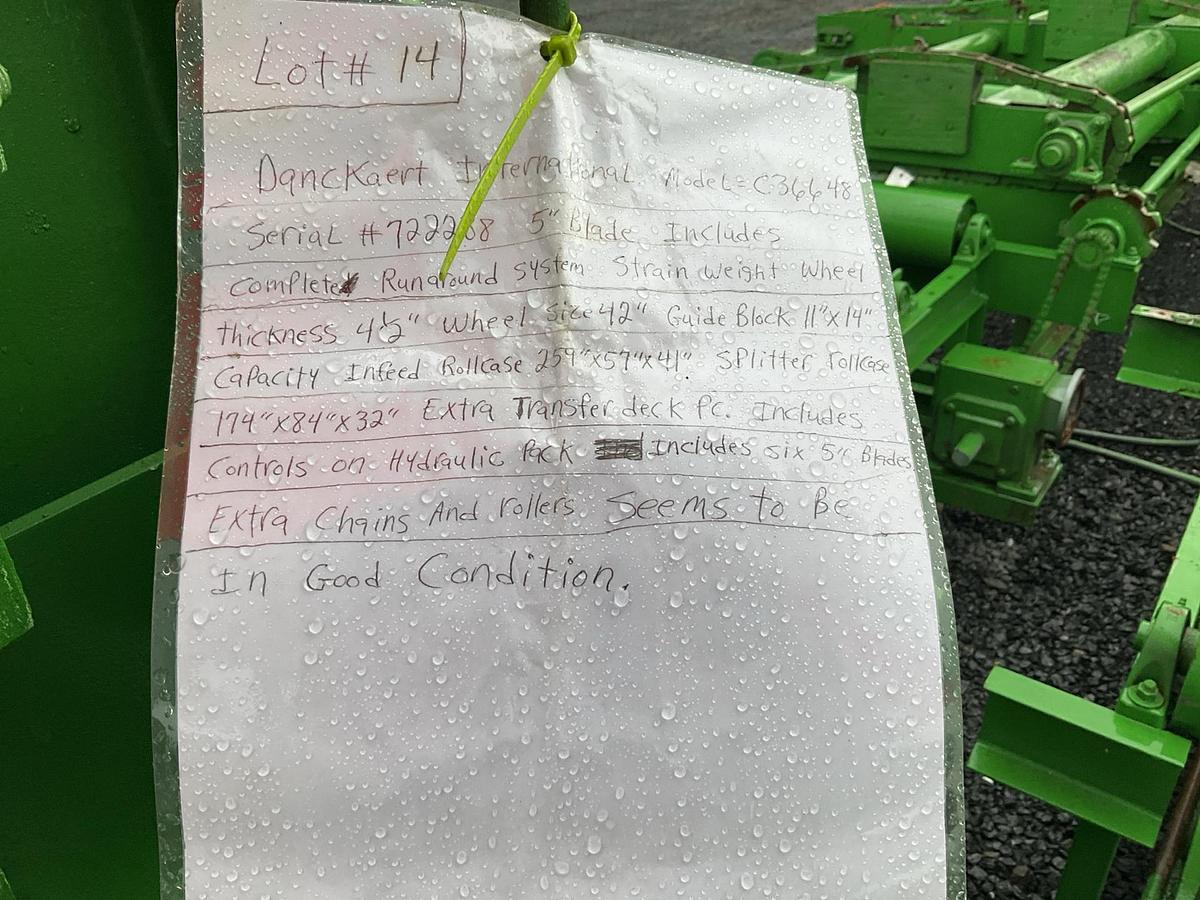 Lot # 14
Danckaert International Model = C36648
Serial # 5" Blade Includes
Complete Runaround System Strain weight Wheel
thickness 4½" Wheel Size 42" Guide Block 11"x14"
Capacity Infeed Rollcase 259"x57"x41" Splitter rollcase
174"x84"x32" Extra Transfer deck Pc. Includes
Controls on Hydraulic Pack Includes six 5" Blades
Extra Chains And rollers Seems to Be
In Good Condition.